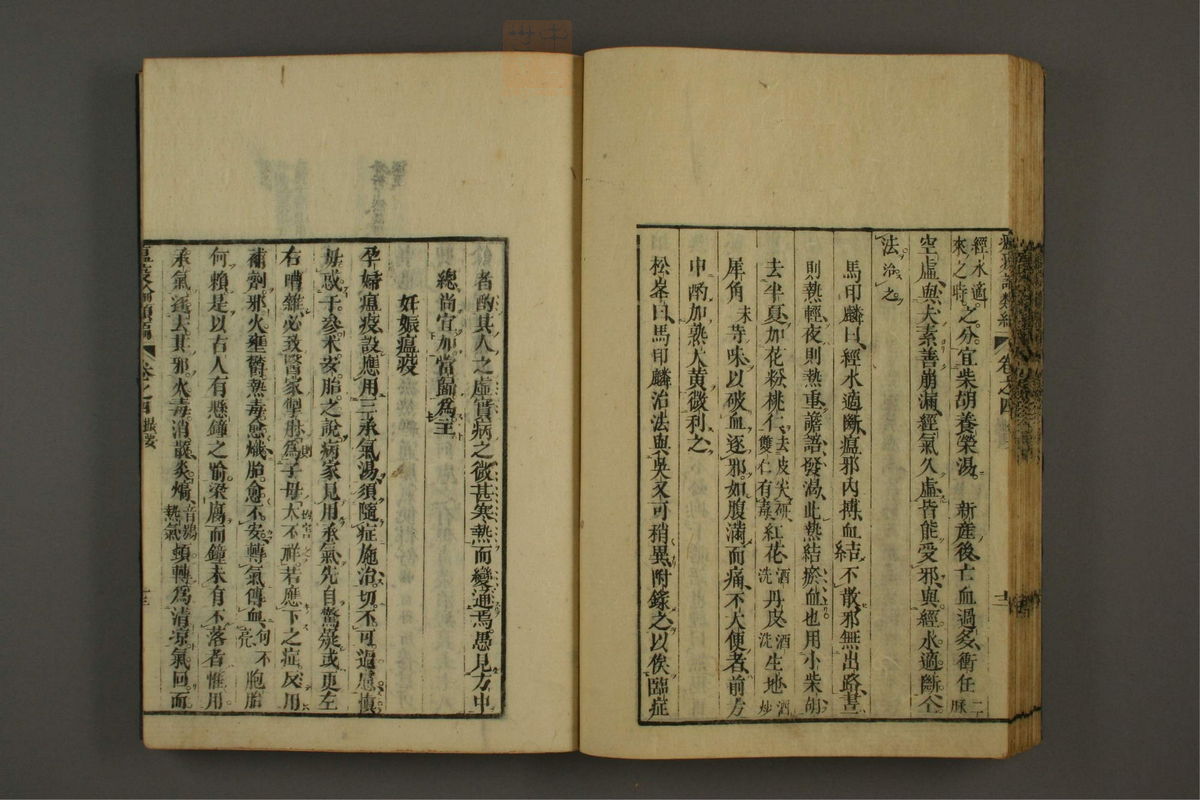 經水適來之時之分宜柴胡養榮湯 新產後亡血過多衝任二脉
空虛與夫素善崩漏經氣久虛皆能受邪與經水適斷仝
法治之
馬印麟曰經水適斷瘟邪內搏血結不散邪無出路晝
則熱輕夜則熱重譫語發渴此熱結瘀血也用小柴胡
去半夏加花粉桃仁去皮尖研雙仁有毒紅花酒洗丹皮酒洗生地酒炒
犀角末等味以破血逐邪如腹滿而痛不大便者前方
中酌加熟大黃微利之
松峯曰馬印麟治法與吳又可稍異附錄之以俟臨症
者酌其人之虛實病之微甚寒熱而變通焉愚見方中
總尚宜加當歸爲主
妊娠瘟疫
孕婦瘟疫設應用三承氣湯須隨症施治切不可過慮慎
毋惑于參朮安胎之說病家見用承氣先自驚疑或更左
右嘈雜必致醫家掣肘爲子母大不祥若應下之症反用
補劑邪火壅鬱熱毒愈熾胎愈不安轉氣傳血句胞胎
何賴是以古人有懸鐘之喻梁腐而鐘未有不落者惟用
承氣逐去其邪火毒消散炎熇音鴞熱氣頓轉爲清凉氣回而
卷之四